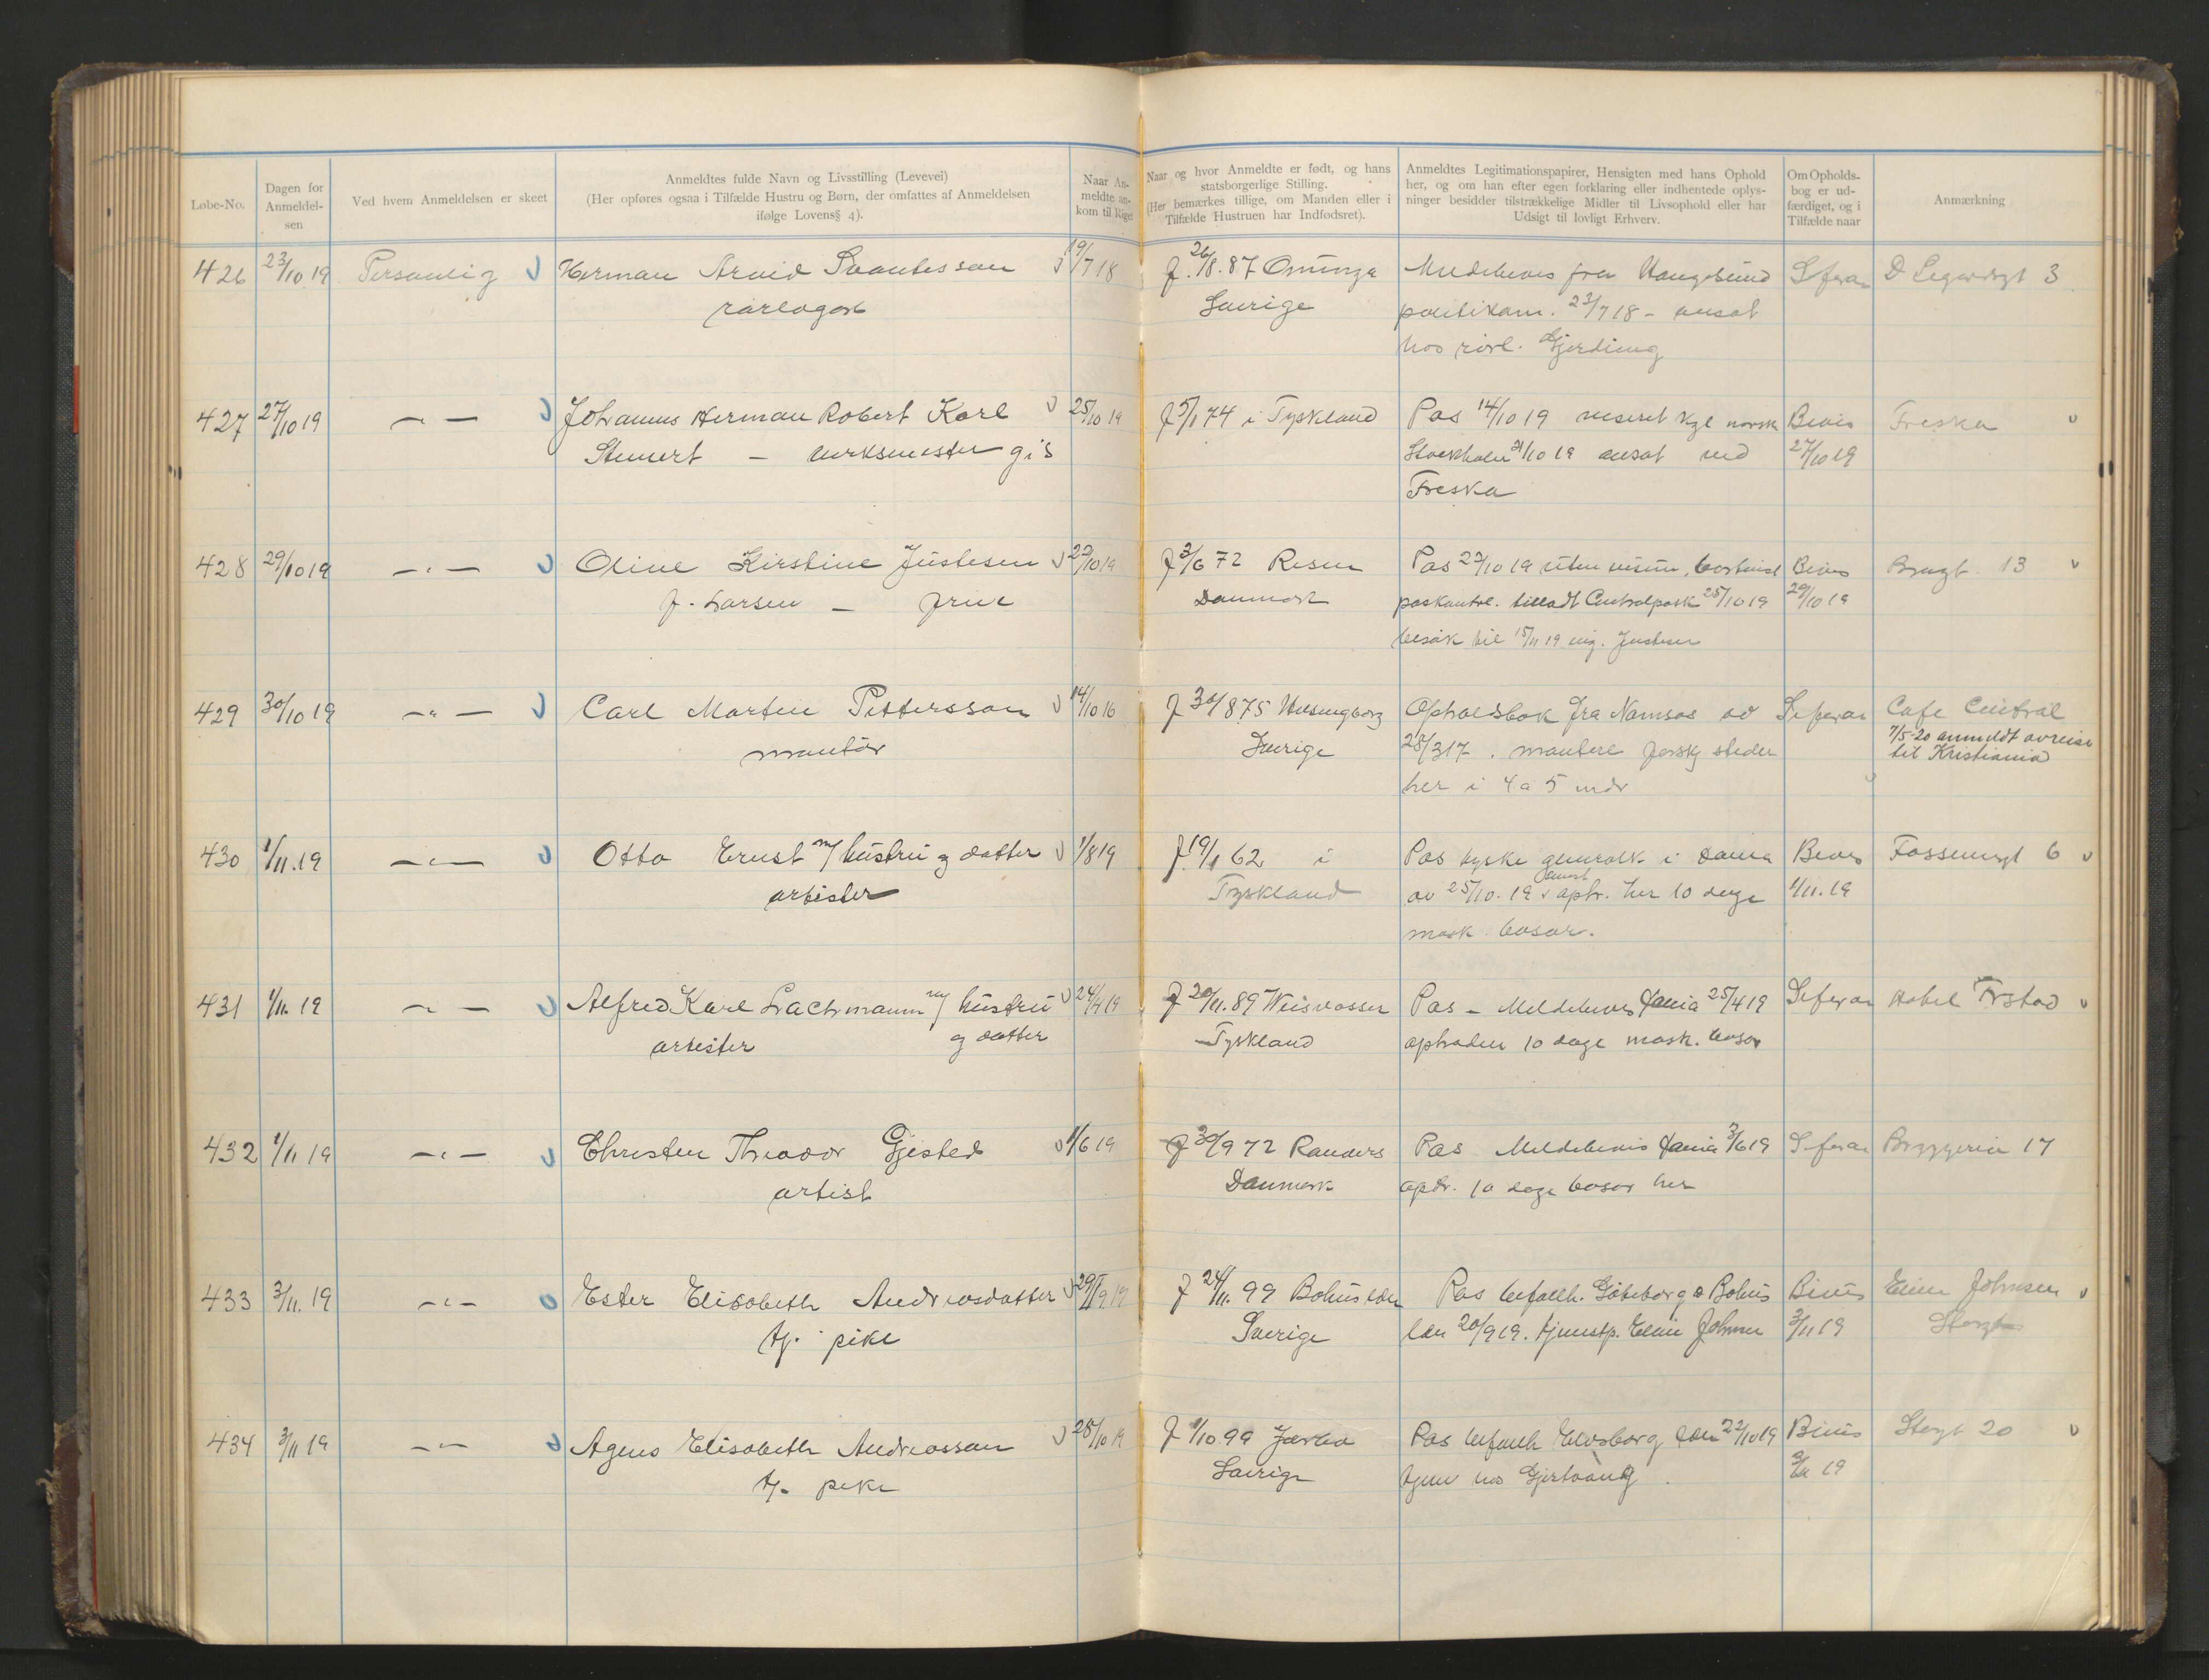 Løbe-No.
Dagen for
Anmeldel-
sen
Ved hvem Anmeldelsen er skeet
Anmeldtes fulde Navn og Livsstilling (Levevei)
(Her opføres ogsaa i Tilfælde Hustru og Børn, der omfattes af Anmeldelsen
ifølge Lovens § 4).
Naar An-
meldte an-
kom til Riget
Naar og hvor Anmeldte er født, og hans
statsborgerlige Stilling.
(Her bemærkes tillige, om Manden eller i
Tilfælde Hustruen har Indfødsret).
Anmeldtes Legitimationspapirer, Hensigten med hans Ophold
her, og om han efter egen forklaring eller indhentede oplys-
ninger besidder tilstrækkelige Midler til Livsophold eller har
Udsigt til lovligt Erhverv.
Om Opholds-
bog er ud-
færdiget, og i
Tilfælde naar
Anmærkning
426 23/10 19 Personlig Herman Arvid Svantesson 19/7 18 f. 26/8. 87 Meldebevis fra Haugesund 3
Sverige politikam. 23/7 18 - ansat
hos Gjerding
427 27/10 19 — — Johannes Herman Robert Karl 25/10 19 f 5/1 74 i Tyskland Pas 14/10 19 viseret kgl norsk Bevis Freska
Stennert — verksmester gis Stockholm 21/10 19 ansat ved 27/10 19
Freska
428 29/10 19 — " — Oline Kirstine Justesen 22/10 19 f 3/6 72 Resen Pas 22/10 19 uten visum, Bevis 13
f. Larsen — frue Danmark paskontrol. tilladt Centralpask 25/10 19 29/10 19
besøk til 15/11 19 ing. Justesen
429 30/10 19 — " — Carl Martin Pettersson 14/10 16 f 30/8 75 Helsingborg Opholdsbok fra Namsos av Cafe Central
montør Sverige 28/3 17. montere forskj steder 7/5-20 anmeldt avreise
her i 4 a 5 mdr til Kristiania
430 1/11. 19 — " — Otto Ernst m/ hustru og datter 1/8 19 f. 19/1 62 i Pas tyske generalk. i Bevis Fossumgt 6
artister Tyskland av 25/10. 19 optr. her 10 dage 1/11. 19
mosk. basar.
431 1/11. 19 — " — Alfred Karl Lachmann m/ hustru 24/4 19 f 20/11. 89 Weisvasser Pas - Meldebevis 25/4 19 Hotel
artister og datter Tyskland optræden 10 dage mosk. basar
432 1/11 19 — " — Christen Theodor Gjested 1/6 19 f 30/9 72 Randers Pas Meldebevis 3/6 19 17
artist Danmark optr. 10 dage basar her
433 3/11. 19 — " — Ester Elisabeth Andreasdatter 29/9 19 f 24/11. 99 Bohus län Pas befallh. Göteborg o Bohus Bevis Johnsen
tj. pike Sverige län 20/9 19. tjenestp. Johnsen 3/11 19 Storgt
434 3/11 19 — " — Agnes Elisabeth Andreasson 28/10 19 f 1/10 99 Pas befallh Elvsborg län 22/10 19 Bevis Storgt 20
tj. pike Sverige tjene hos 3/11 19